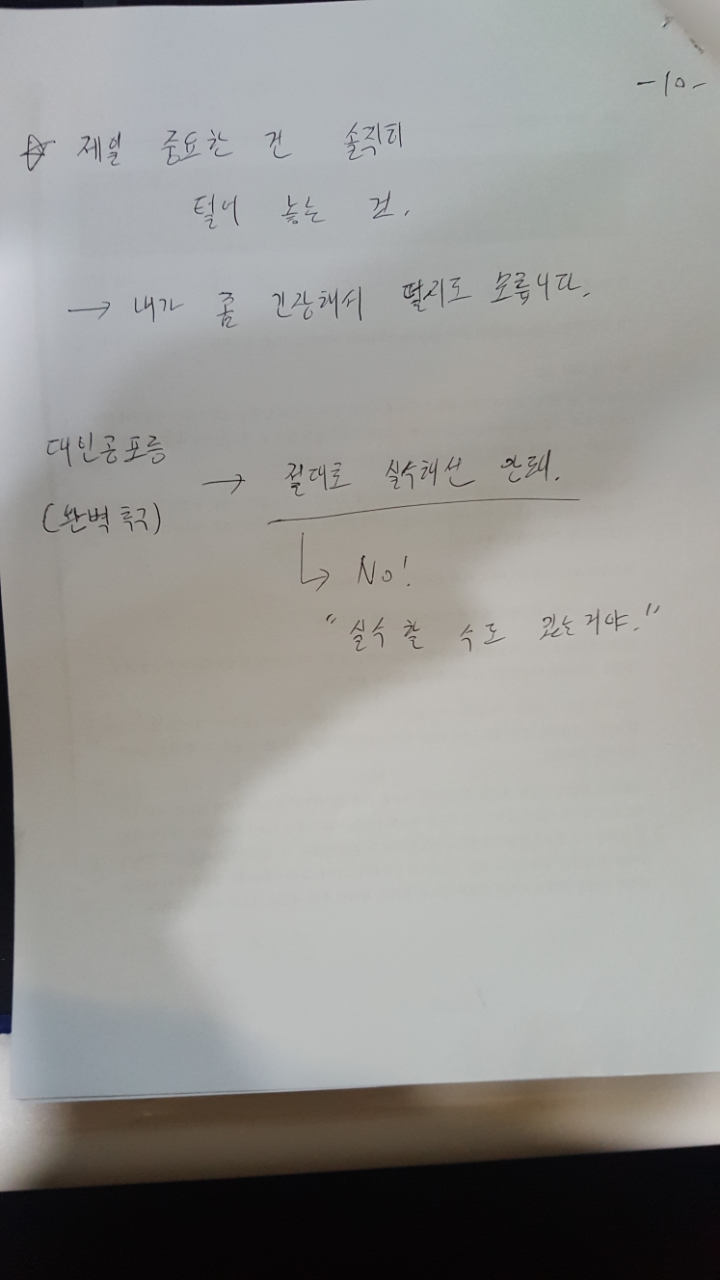 -10-
☆ 제일 중요한 건 솔직히
털어 놓는 것.
→ 내가 좀 긴장해서 떨지도 모릅니다.
대인공포증 → 절대로 실수해선 안돼.
(완벽 추구)
↳ No!
"실수 할 수도 있는거야."